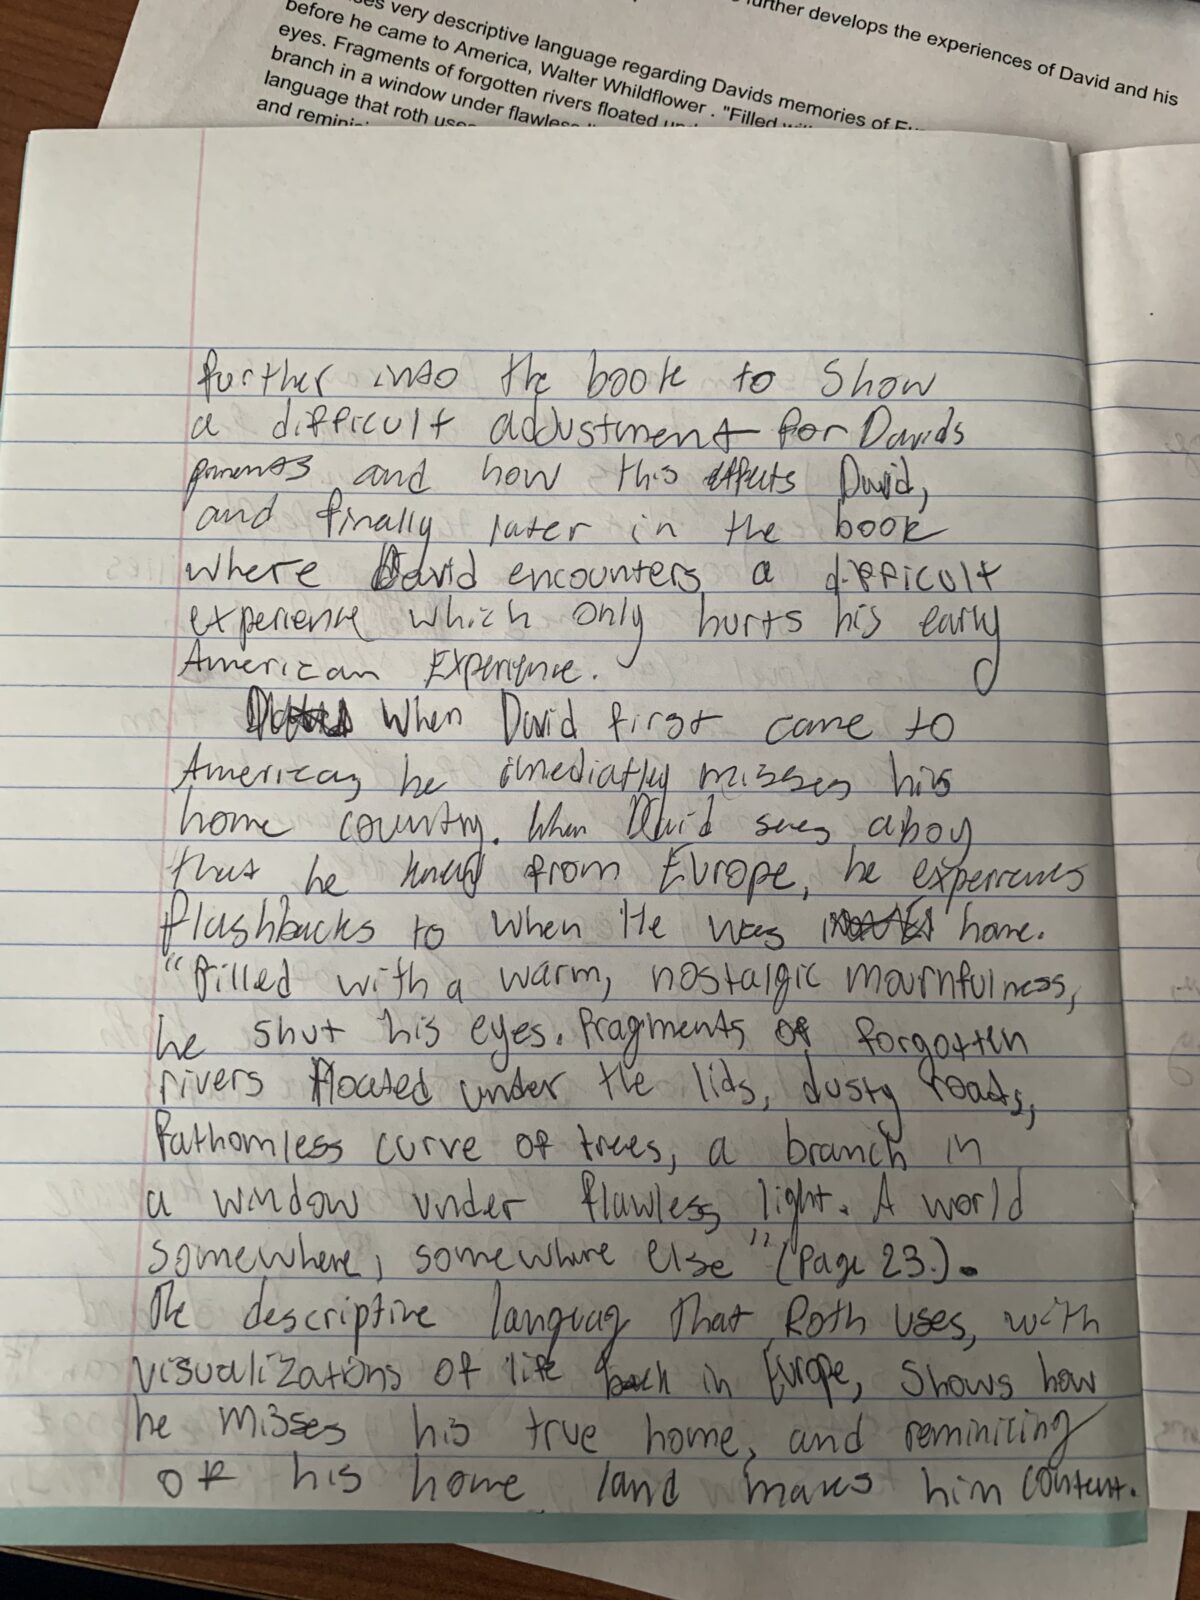 further develops the experiences of David and his
very descriptive language regarding Davids memories of
before he came to America, Walter Whildflower . "Filled
eyes. Fragments of forgotten rivers floated
branch in a window under flawless
language that roth uses
and
further into the book to Show
a difficult addustment for Davids
parents and how this effects David,
and finally later in the book
where David encounters a difficult
experience which only hurts his early
American Experience.
When David first came to
America, he imediatley misses his
home country. When David sees a boy
that he knew from Europe, he experiences
flashbacks to when He was home.
"filled with a warm, nostalgic mournfulness,
he shut his eyes. Fragments of forgotten
rivers floated under the lids, dusty roads,
fathomless curve of trees, a branch in
a window under flawless light. A world
somewhere, somewhere else" (Page 23.).
The descriptive language that Roth uses, with
visualizations of life back in Europe, shows how
he misses his true home, and reminiting
of his home land makes him content.